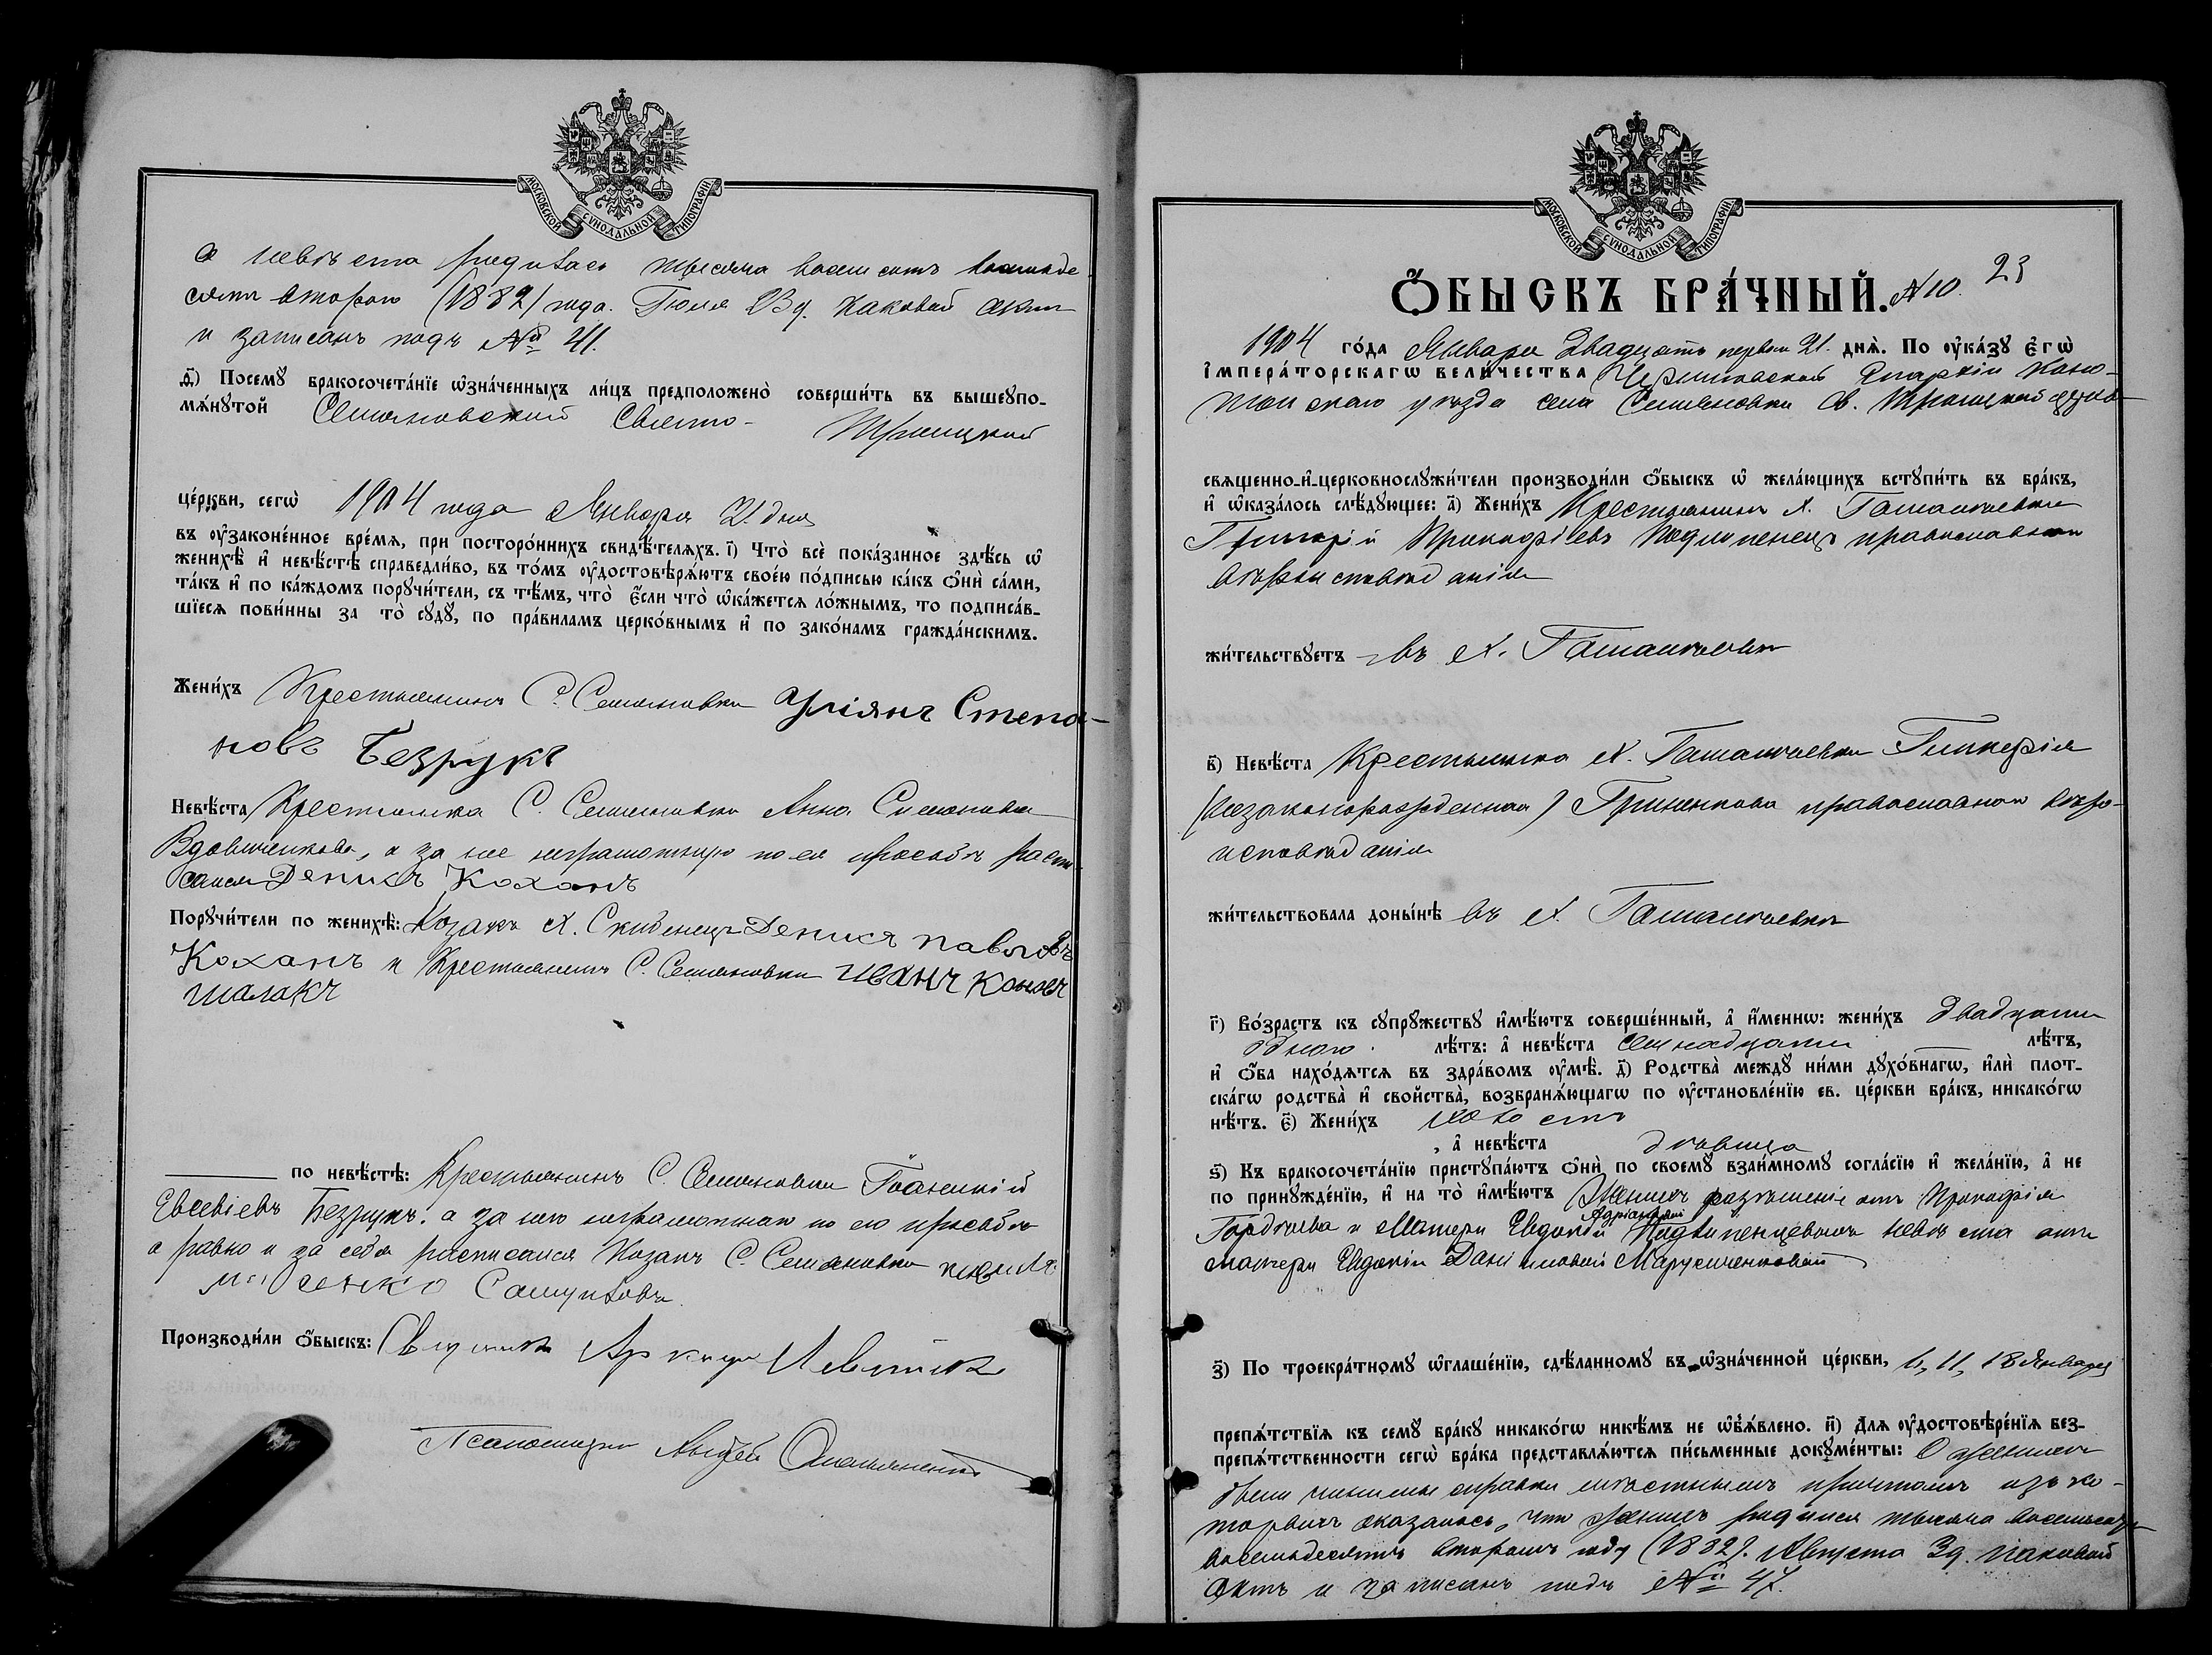 МОСКОВСКОЙ СѴНОДАЛЬНОЙ ТИПОГРАФІИ
а невѣста родилась тысяча восемсотъ восемьде-
сятъ второго (1882) года. Іюля 13 д. каковой актъ
и записанъ подъ № 41.
д҃) Посемꙋ бракосочета́нїе ѡзна́ченныхъ ли́цъ предположено̀ соверши́ть въ вышеꙋпо-
мѧ́нꙋтой Семяновской Свято- Троицкой
це́ркви, сегѡ̀ 1904 года Января 21 дня
въ ᲂу҆законе́нное вре́мѧ, при посторо́ннихъ свидѣ́телѧхъ. і҃) Что̀ всѐ пока́занное здѣ́сь ѡ҆
женихѣ̀ и҆ невѣ́стѣ справедли́во, въ то́мъ ᲂу҆достовѣрѧ́ютъ свое́ю по́дписью ка́къ ѻ҆нѝ са́ми,
та́къ и҆ по ка́ждомъ порꙋчи́тели, съ тѣ́мъ, что̀ є҆́сли что̀ ѡ҆ка́жетсѧ ло́жнымъ, то подписа́в-
шїесѧ пови́нны за то̀ сꙋдꙋ̀, по пра́виламъ церко́внымъ и҆ по зако́намъ гражда́нскимъ.
Жени́хъ Крестьянинъ С. Семяновки Уліянъ Степа-
новъ Безрукъ
Невѣ́ста Крестьянка С. Семяновки Анна Симонова
Вдовиченкова, а за нее неграмотную по ея просьбѣ распи-
сался Денисъ Коханъ
Порꙋчи́тели по женихѣ̀: Козакъ х. Скибенецъ Денисъ Павловъ
Коханъ и Крестьянинъ С. Семяновки иванъ Коновъ
шалакъ
по невѣ́стѣ: Крестьянинъ С. Семяновки Іоаникій
Евсевіевъ Безрукъ. а за него неграмотнаго по его просьбѣ
а равно и за себя расписался Козакъ С. Семяновки
Самуиловъ
Производи́ли ѻ҆́быскъ: Священникъ Левитскій
Псаломщикъ Андрей Омельяненко
МОСКОВСКОЙ СѴНОДАЛЬНОЙ ТИПОГРАФІИ
Ѻ҆́БЫСКЪ БРА́ЧНЫЙ. № 10. 23
1904 го́да Января двадцать перваго 21. днѧ̀. По ᲂу҆ка́зꙋ є҆гѡ̀
і҆мпера́торскагѡ вели́чества Черниговской Епархіи Коно-
топскаго уѣзда села Семяновки Св. Троицкой церкви
свѧщенно-и҆-церковнослꙋжи́тели производи́ли ѻ҆́быскъ ѡ҆ жела́ющихъ вступи́ть въ бра́къ,
и҆ ѡ҆каза́лось слѣ́дꙋющее: а҃) Жени́хъ Крестьянинъ х.
Григорій Прокофіевъ Подлипенецъ православнаго
вѣроисповѣданія
жи́тельствꙋетъ въ х.
в҃) Невѣ́ста Крестьянка х. Гликерія
(незаконорожденная) Гриненкова православнаго вѣро-
исповѣданія
жи́тельствовала доны́нѣ въ х.
г҃) Во́зрастъ къ сꙋпрꙋжествꙋ и҆мѣ́ютъ соверше́нный, а҆ и҆́меннѡ: жени́хъ двадцати
одного лѣ́тъ: а҆ невѣ́ста семнадцати лѣ́тъ,
и҆ ѻ҆́ба нахо́дѧтсѧ въ здра́вомъ ᲂу҆мѣ̀. д҃) Родства̀ междꙋ̀ ни́ми дꙋхо́внагѡ, и҆лѝ плот-
ска́гѡ родства̀ и҆ свойства̀, возбранѧ́ющагѡ по ᲂу҆становле́нїю св. це́ркви бра́къ, никако́гѡ
нѣ́тъ. є҃) Жени́хъ холостъ
, а҆ невѣ́ста дѣвица
ѕ҃) Къ бракосочета́нїю пристꙋпа́ютъ ѻ҆нѝ по своемꙋ̀ взаи́мномꙋ согла́сїю и҆ жела́нїю, а҆ не
по принꙋжде́нїю, и҆ на то̀ и҆мѣ́ютъ Женихъ разрѣшеніе отъ Прокофія
Гордѣева и матери Евдокіи Адріановой Подлипенцевыхъ невѣста отъ
матери Евдокіи Даниловой Марусиченковой
з҃) По троекра́тномꙋ ѡ҆глаше́нїю, сдѣ́ланномꙋ въ ѡ҆зна́ченной це́ркви, 6, 11, 18 Января
препѧ́тствїѧ къ семꙋ̀ бра́кꙋ никако́гѡ никѣ́мъ не ѡ҆б̾ѧ́влено. и҃) Длѧ ᲂу҆достовѣре́нїѧ без-
препѧ́тственности сегѡ̀ бра́ка представлѧ́ютсѧ пи́сьменные докꙋме́нты: О женихѣ
были чинимы справки мѣстнымъ причтомъ изъ ко-
торыхъ оказалось, что женихъ родился тысяча восемьсотъ
восемьдесятъ второмъ году (1882). Августа 3 д. каковой
актъ и записанъ подъ № 47.